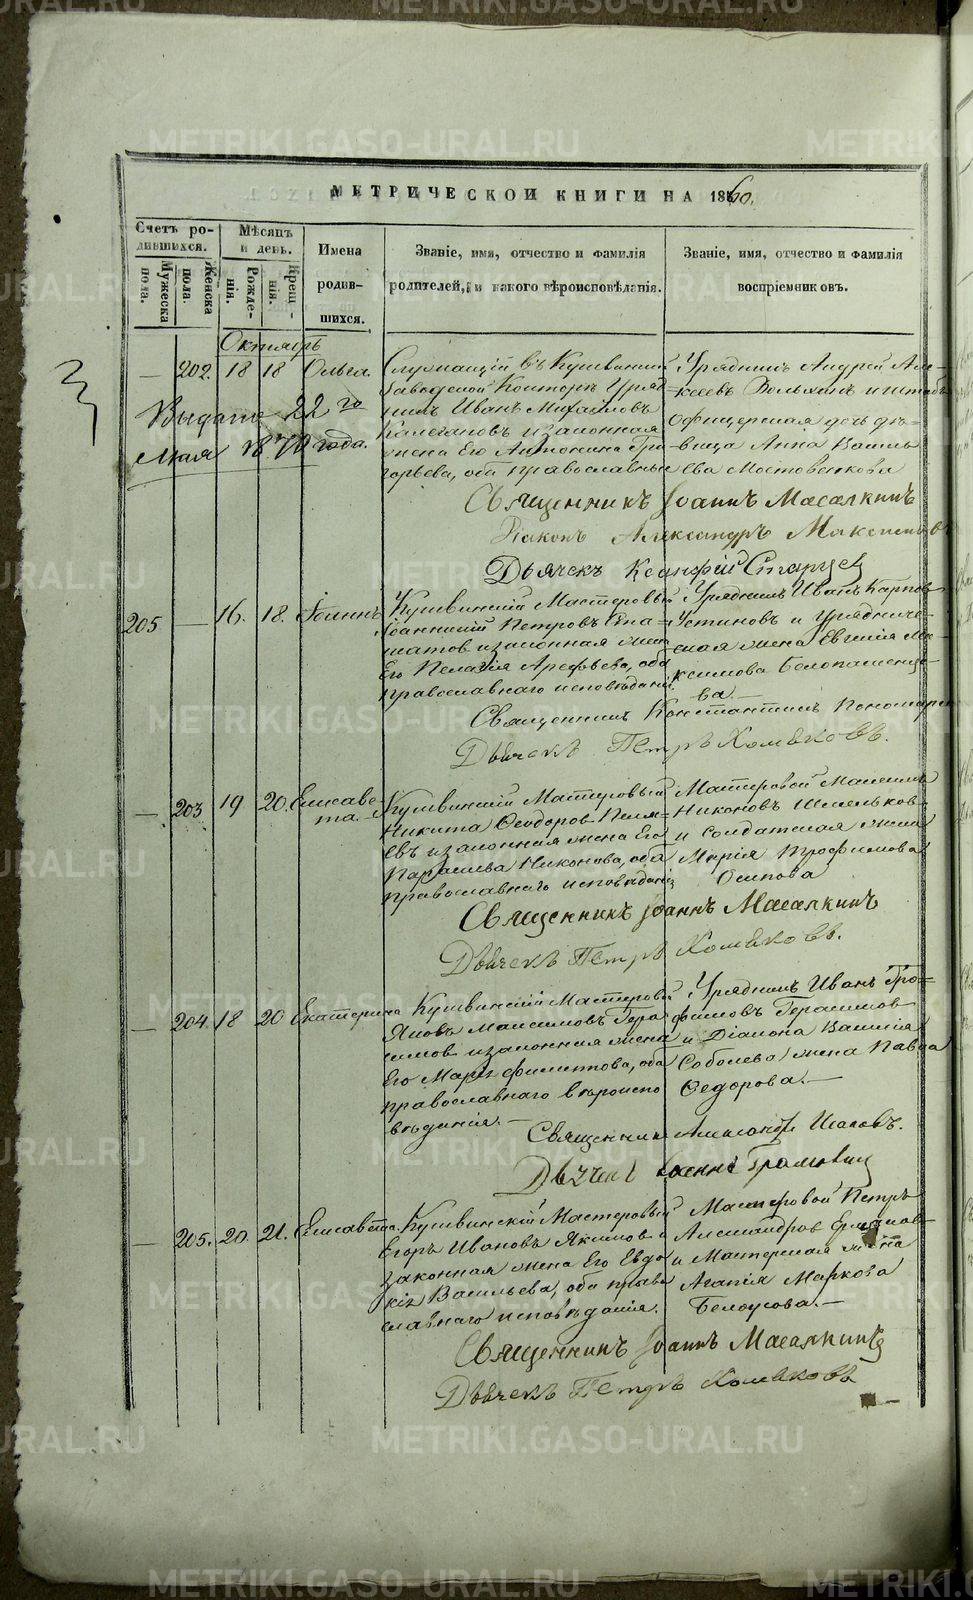 METRIKI.GASO-URAL.RU
МЕТРИЧЕСКОЙ КНИГИ НА 1860.
Счетъ родившихся.
Мужеска пола.
Женска пола.
Мѣсяцъ и день.
Рожденія.
Крещенія.
Имена родившихся.
Званіе, имя, отчество и фамилія родителей, и какого вѣроисповѣданія.
Званіе, имя, отчество и фамилія воспріемниковъ.
Октябрь
— 202. 18 18 Ольга.
Служащій въ Кушвинской
Заводской Конторѣ Уряд-
никъ Иванъ Михайловъ
и законная
жена Его Антонина Гри-
горьева, оба православные
Урядникъ Андрей Але-
ксѣевъ и штабъ
офицерская дочь дѣ-
вица Анна Василь
ева
Выдано 22го
Мая 1870 года.
Священникъ Іоаннъ Масалкинъ
Діаконъ Александръ Максимовъ
Дьячекъ Старцев
205 — 16. 18. Іоаннъ
Кушвинскій Мастеровый
Іоанникій Петровъ
и законная жена
Его Пелагія Арефьева, оба
православнаго исповѣданія.
Урядникъ Иванъ Карпов
Устиновъ и Уряднич-
ская жена Евгенія Ма-
ксимова Белопашенце-
ва.—
Священникъ Константинъ Пономарев
Дьячекъ Петръ Хомяковъ.
— 203 19 20. Елисаве-
та.—
Кушвинскій Мастеровый
Никита Ѳеодоров
евъ и законная жена Его
Параскева Никонова, оба
православнаго исповѣданія
Мастеровой
Никоновъ
и солдатская жена
Марія Трофимова
Осипова
Священникъ Іоаннъ Масалкинъ
Дьячекъ Петръ Хомяковъ.
— 204. 18 20 Екатерина
Кушвинскій Мастеровый
Яковъ Максимовъ Гера-
симов и законная жена
Его Марья Филиптова, оба
православнаго вѣроиспо
вѣданія.—
Урядникъ Иванъ Тро-
фимовъ Герасимов
и Діакона Василія
Соболева жена Павла
Ѳедорова.—
Священникъ Александръ Исаковъ.
Дьячекъ
— 205. 20. 21. Елисавета.
Кушвинскій Мастеровый
Егоръ Ивановъ Якимов и
законная жена Его Евдо
кія Васильева, оба право
славнаго исповѣданія.
Мастеровой Петръ
Александров Ермаков
и Мастерская жена
Агапія Маркова
Белоусова.—
Священникъ Іоаннъ Масалкинъ
Дьячекъ Петръ Хомяковъ